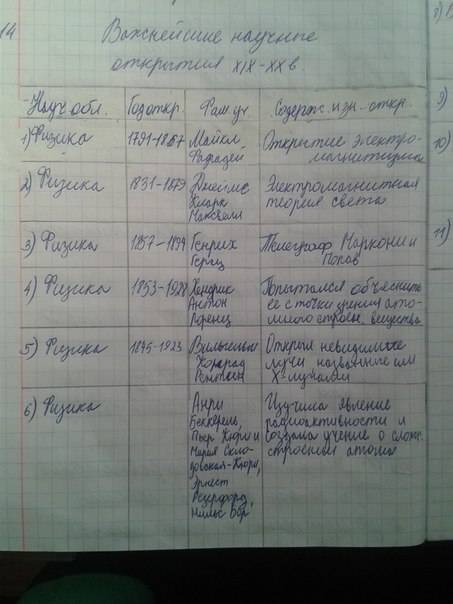 14
Важнейшие научные
открытия XIX-XX в.
Науч обл. Год откр. Фам уч. Содерж. и зн. откр.
1) Физика 1791-1867 Майкл Открытие электро-
Фарадей магнитизма
2) Физика 1831-1879 Джеймс Электромагнитная
Кларк теория света
Максвелл
3) Физика 1857-1894 Генрих Телеграф Маркони и
Герц Попов
4) Физика 1853-1928 Хендрик Попытался объяснить
Антон ее с точки зрения ато-
Лоренц много строен. вещества
5) Физика 1845-1923 Вильгельм Открыл невидимые
Конрад лучи названные им
Рентген X-лучами
6) Физика Анри Изучила явление
Беккерель, радиоактивности и
Пьер Кюри и создала учение о слож.
Мария Скло- строении атома
довская-Кюри,
Эрнест
Резерфорд,
Нильс Бор
8)
9)
10)
11)